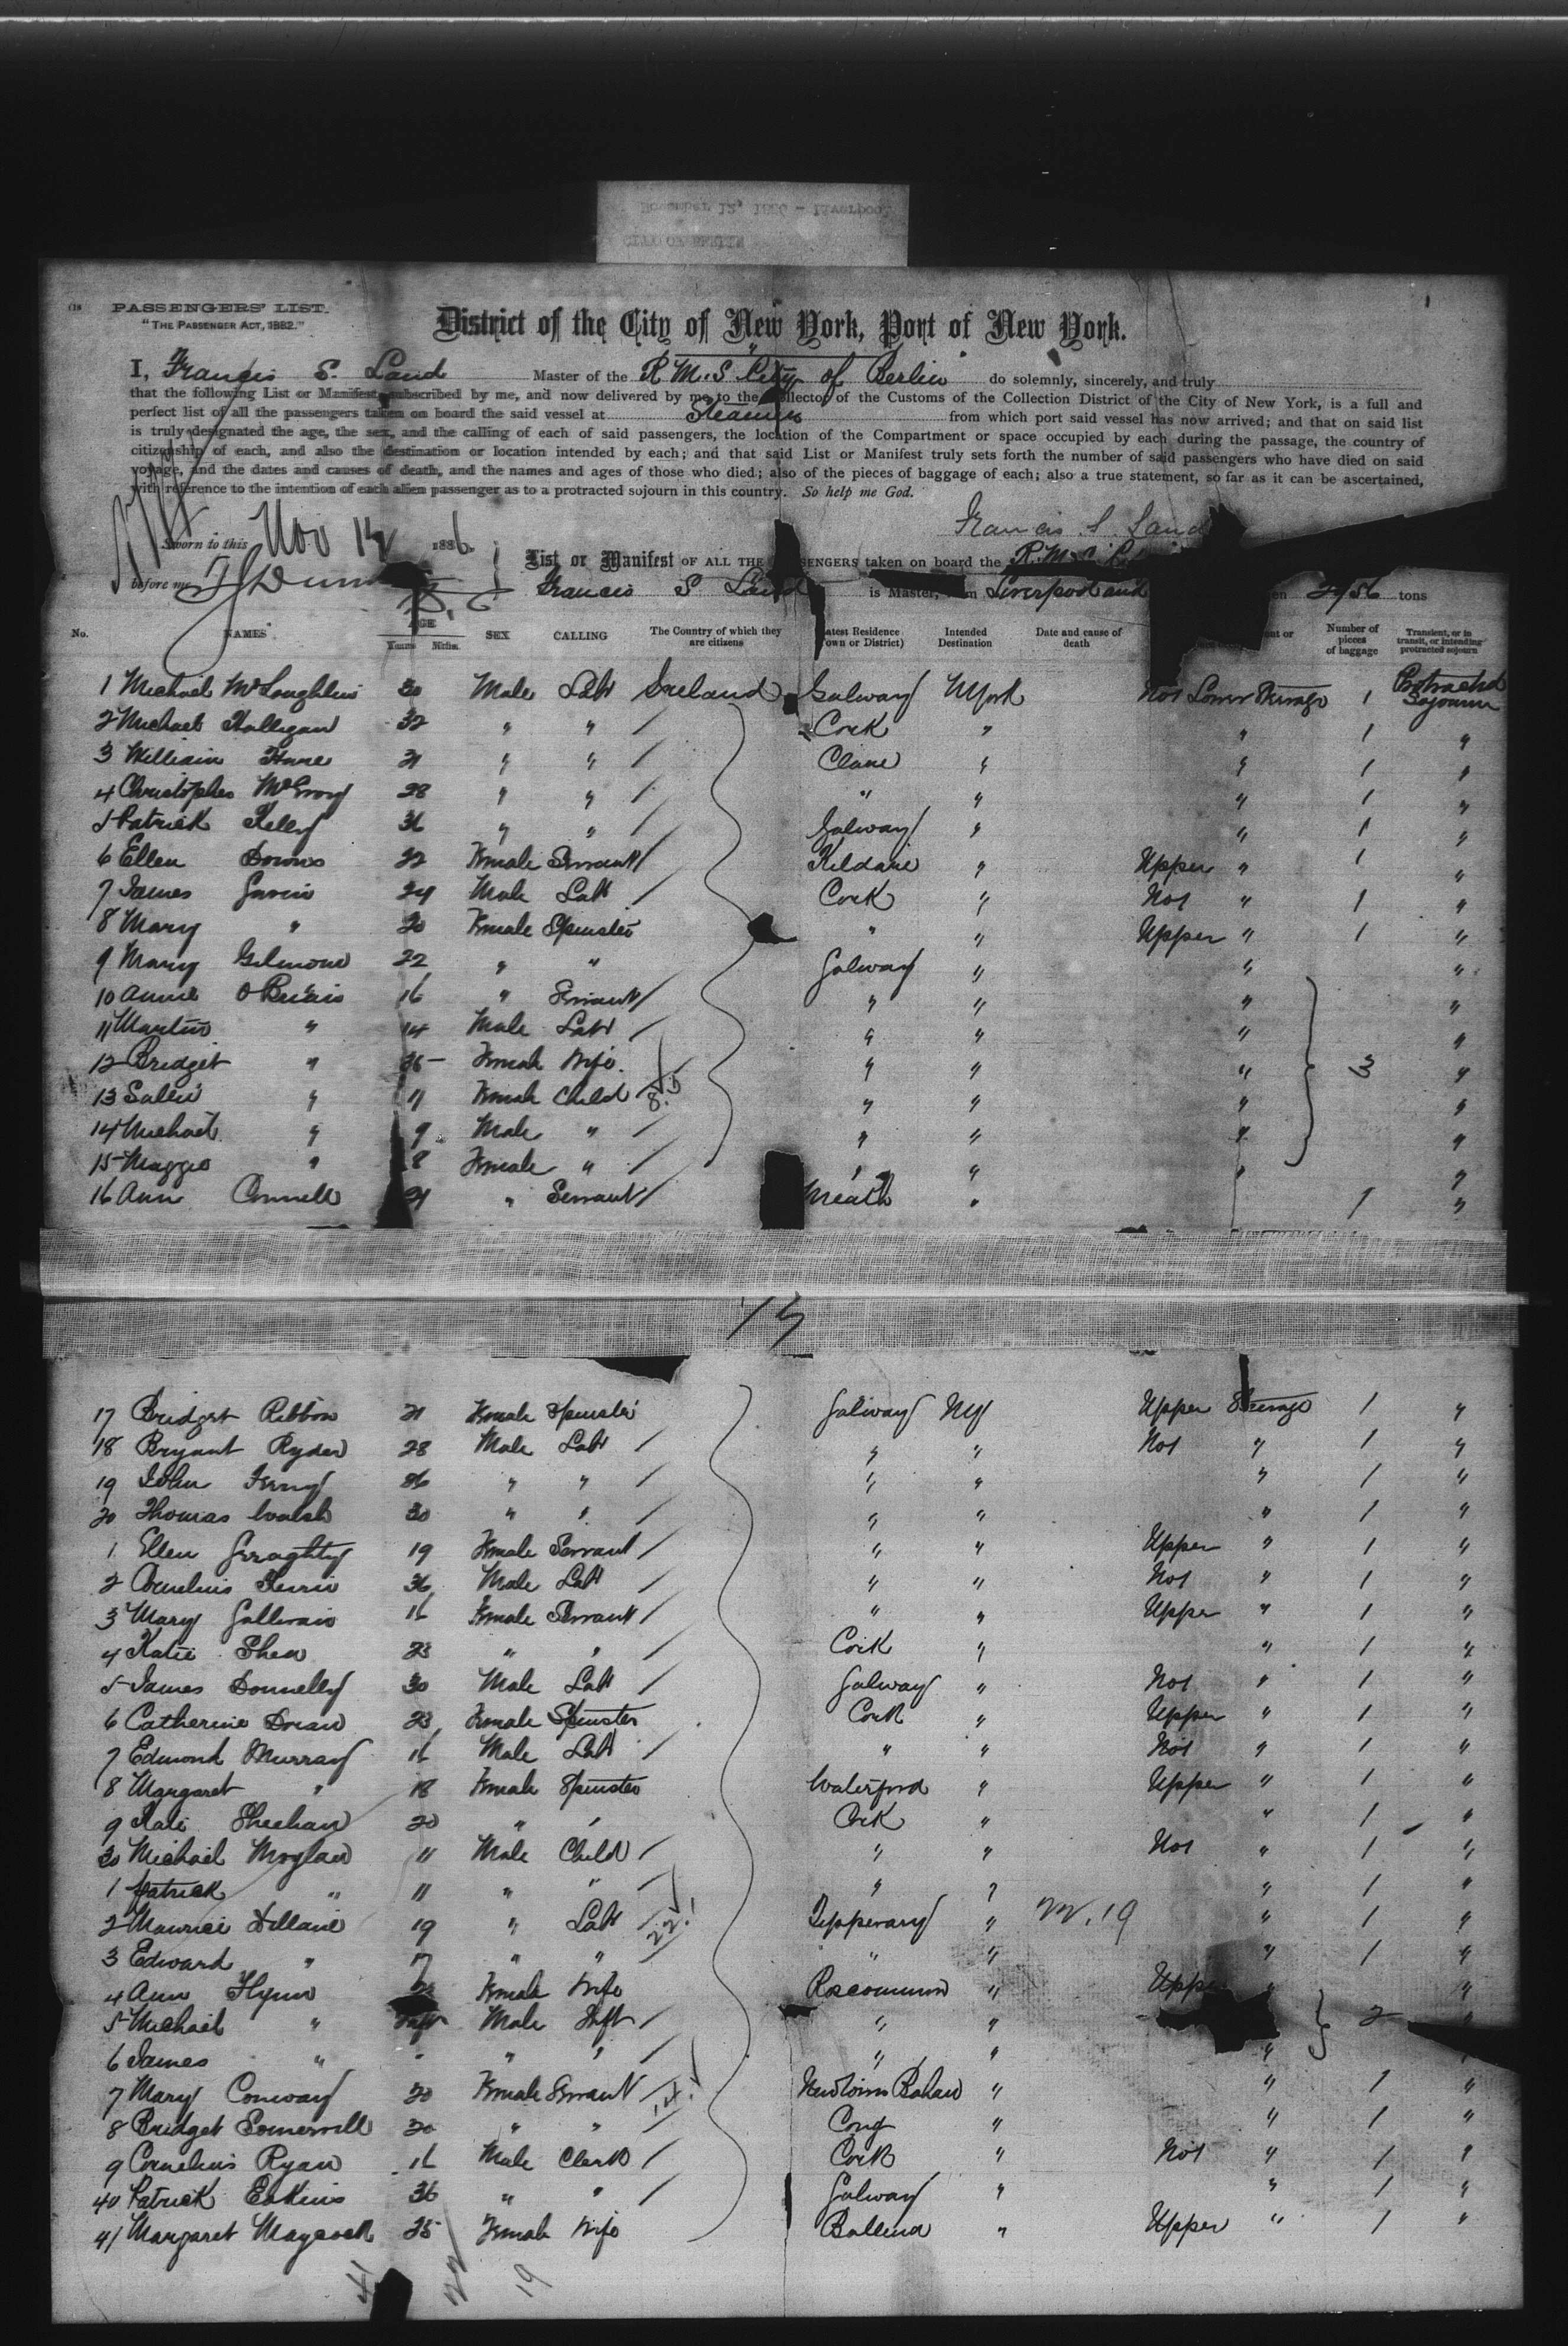 November 12, 1886 - Liverpool
CITY OF BERLIN
1
PASSENGERS' LIST.
"THE PASSENGER ACT, 1882."
District of the City of New York, Port of New York.
I, Francis S. Land Master of the R.M.S. City of Berlin do solemnly, sincerely, and truly
that the following List or Manifest, subscribed by me, and now delivered by me to the Collector of the Customs of the Collection District of the City of New York, is a full and
perfect list of all the passengers taken on board the said vessel at Steamer from which port said vessel has now arrived; and that on said list
is truly designated the age, the sex, and the calling of each of said passengers, the location of the Compartment or space occupied by each during the passage, the country of
citizenship of each, and also the destination or location intended by each; and that said List or Manifest truly sets forth the number of said passengers who have died on said
voyage, and the dates and causes of death, and the names and ages of those who died; also of the pieces of baggage of each; also a true statement, so far as it can be ascertained,
with reference to the intention of each alien passenger as to a protracted sojourn in this country. So help me God.
Francis S. Land
Sworn to this Nov 12 1886
List or Manifest OF ALL THE PASSENGERS taken on board the R.M.S.
before me
Francis S Land is Master, from Liverpool and 2956 tons
No. NAMES AGE Years Mths. SEX CALLING The Country of which they are citizens Latest Residence Town or District) Intended Destination Date and cause of death Number of pieces of baggage Transient, or in transit, or intending protracted sojourn
1 Michael McLoughlin 30 Male Labr Ireland Galway NYork Not Lower Steerage 1 Protracted Sojourn
2 Michael Halligan 32 " " / Cork " " 1 "
3 William Hare 21 " " / Clare " " 1 "
4 Christopher McEvoy 28 " " / " " " 1 "
5 Patrick Kelly 36 " " / Galway " " 1 "
6 Ellen Downs 22 Female Servant / Kildare " Upper " 1 "
7 James Gavin 24 Male Labr / Cork " Not " 1 "
8 Mary " 20 Female Spinster " " Upper " 1 "
9 Mary Gilmore 22 " " Galway " " "
10 Annie O'Brien 16 " Servant / " " " "
11 Martin " 14 Male Labr / " " " "
12 Bridget " 36 Female Wife " " " 3 "
13 Female Child / " " " "
14 Michael " 9 Male " / " " " "
15 Maggie " 8 Female " / " " " "
16 Ann Connell 21 " Servant / Meath " 1 "
17 Bridget Ribbon 21 Female Spinster Galway NY Upper Steerage 1 "
18 Bryant Ryder 28 Male Labr / " " Not " 1 "
19 John 36 " " / " " " 1 "
20 Thomas Walsh 30 " " / " " " 1 "
1 Ellen Geraghty 19 Female Servant / " " Upper " 1 "
2 Cornelius 36 Male Labr / " " Not " 1 "
3 Mary Gallivan 16 Female Servant / " " Upper " 1 "
4 Katie Shea 23 " " / Cork " " 1 "
5 James Donnelly 30 Male Labr / Galway " Not " 1 "
6 Catherine Doran 23 Female Spinster Cork " Upper " 1 "
7 Edmond Murray 16 Male Labr / " " Not " 1 "
8 Margaret " 18 Female Spinster Waterford " Upper " 1 "
9 Kate Sheehan 20 " " Cork " " 1 "
30 Michael Moylan 11 Male Child / " " Not " 1 "
1 Patrick " 11 " " / " " " 1 "
2 Maurice Dillane 19 " Labr / Tipperary " " 1 "
3 Edward " 17 " " / " " " 1 "
4 Ann Flynn Female Wife Roscommon " Upper " "
5 Michael " Inft Male Inft / " " 2 "
6 James " " " " / " " " "
7 Mary Conway 20 Female Servant / " " 1 "
8 Bridget Somervill 20 " " / Cong " " 1 "
9 Cornelius Ryan 16 Male Clerk / Cork " Not " 1 "
40 Patrick Eakins 36 " " / Galway " " 1 "
41 Margaret Maycock 25 Female Wife Ballina " Upper " 1 "
41 22 19